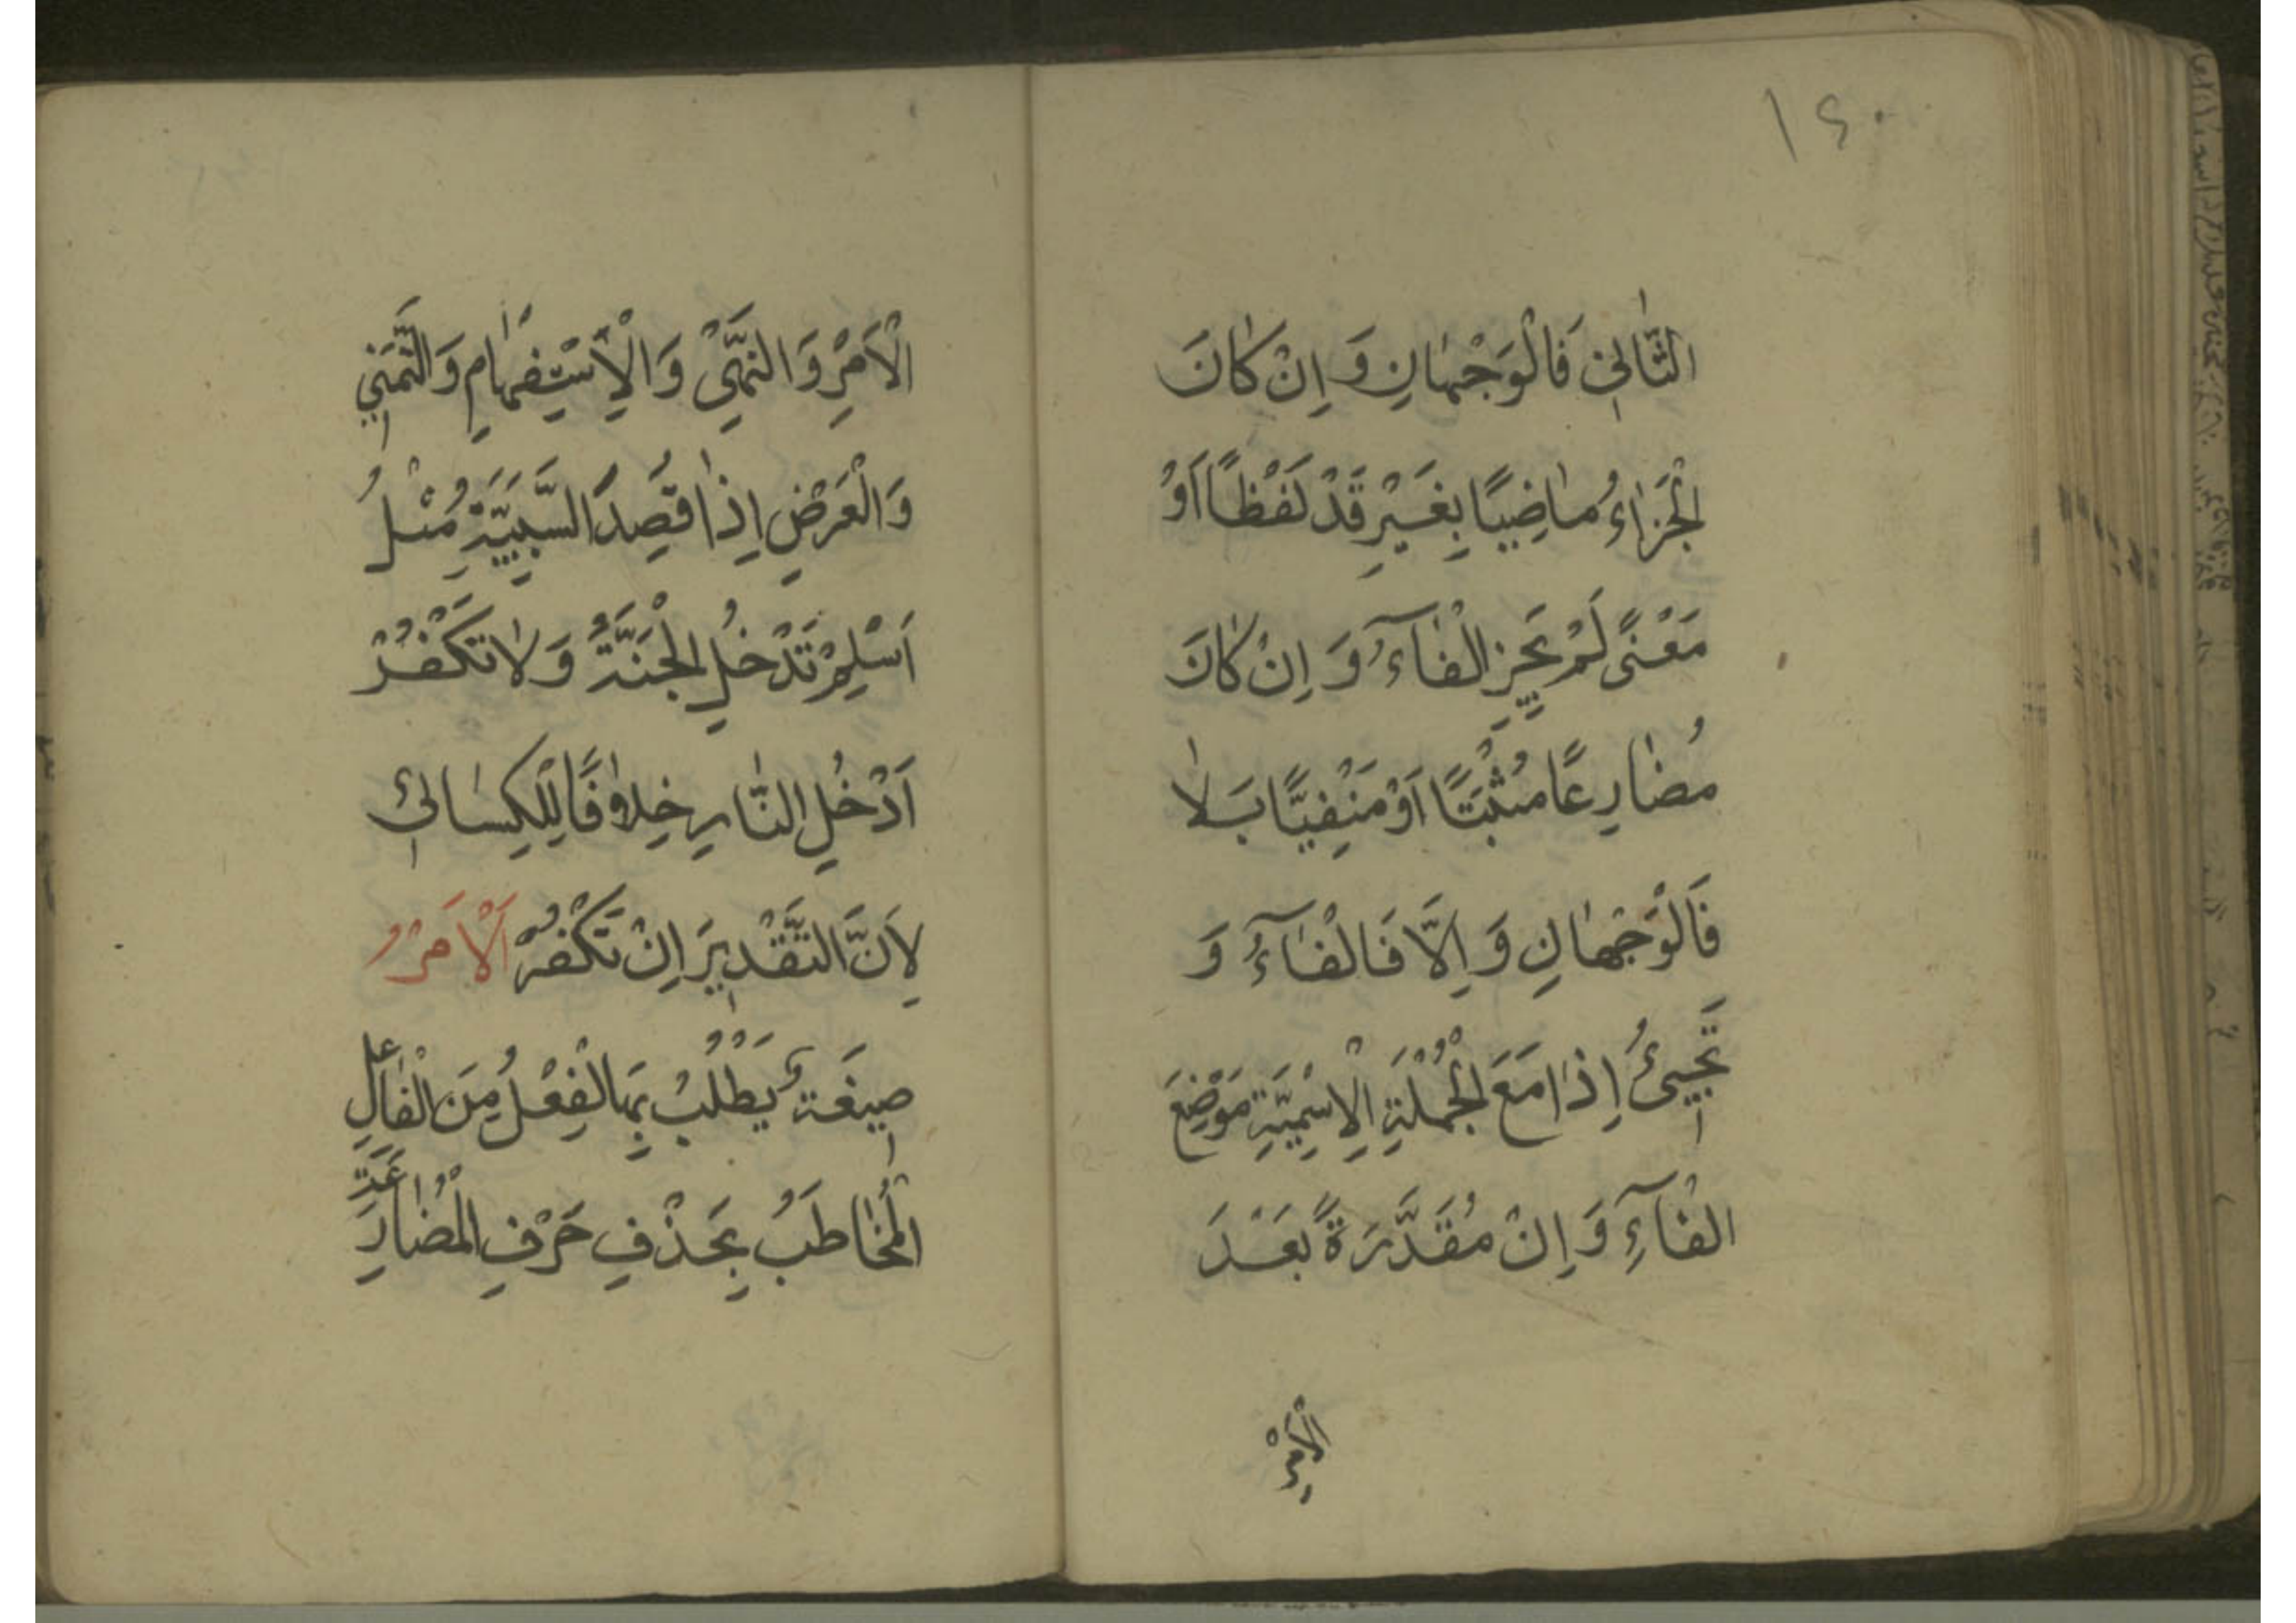 ١٤٠
الثَّانِي فَالْوَجْهَانِ وَ اِنْ كَانَ
الْجَزَاءُ مَاضِيًا بِغَيْرِ قَدْ لَفْظًا اَوْ
مَعْنًى لَمْ يَجُزِ الْفَآءُ وَ اِنْ كَانَ
مُضَارِعًا مُثْبَتًا اَوْ مَنْفِيًّا بِلَا
فَالْوَجْهَانِ وَ اِلَّا فَالْفَآءُ وَ
تَجِيئُ اِذَا مَعَ الْجُمْلَةِ الْاِسْمِيَّةِ مَوْضِعَ
الْفَآءِ وَ اِنْ مُقَدَّرَةً بَعْدَ
الْاَمْرِ
الْاَمْرِ وَ النَّهْيِ وَ الْاِسْتِفْهَامِ وَ التَّمَنِّي
وَ الْعَرْضِ اِذَا قُصِدَ السَّبَبِيَّةُ مِثْلُ
اَسْلِمْ تَدْخُلِ الْجَنَّةَ وَ لَا تَكْفُرْ
اَدْخُلِ النَّارِ خِلَافًا لِلْكِسَائِي
لِاَنَّ التَّقْدِيرَ اِنْ تَكْفُرْ اَلْاَمْرُ
صِيغَةٌ يَطْلُبُ بِهَا الْفِعْلُ مِنَ الْفَاعِلِ
الْمُخَاطَبُ بِحَذْفِ حَرْفِ الْمُضَارِعَةِ